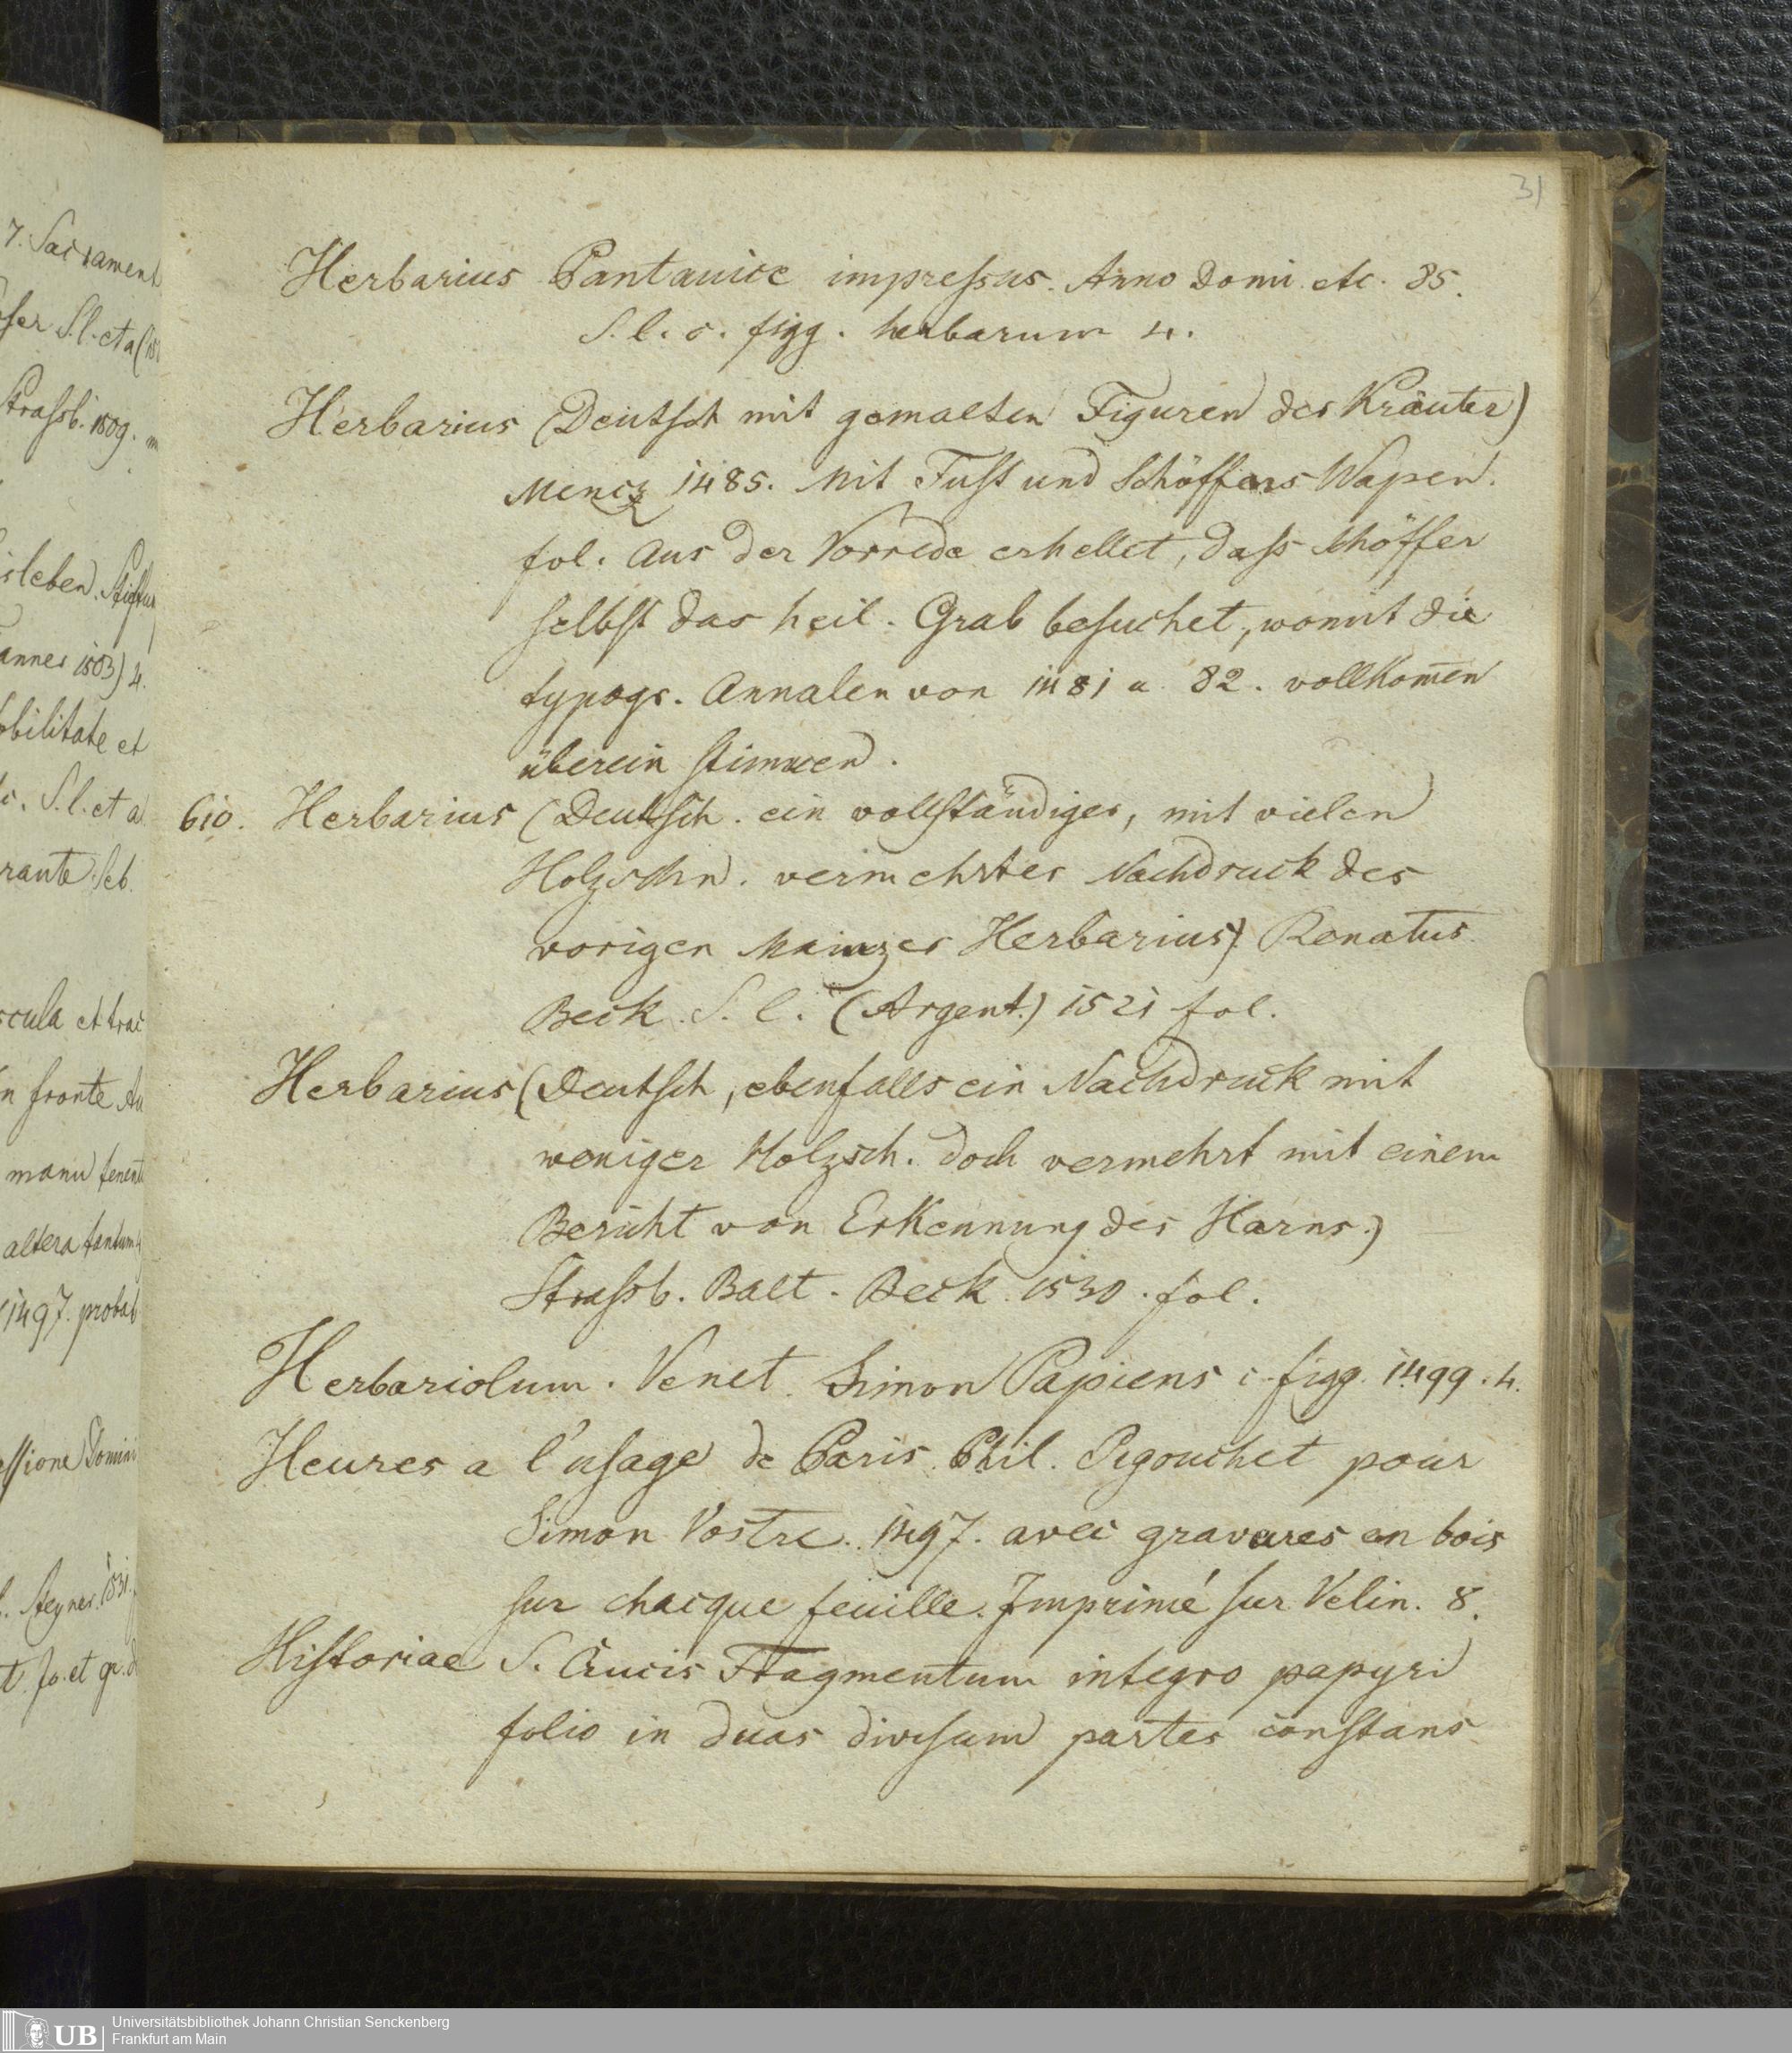 7. Sacrament
S. l. et a
Strassb. 1509.
isleben.
annes 1503) 4.
obilitate et
S. l. et a
rante Seb.
scula et trac
n fronte Au
manu tenent
altera tantum
1497. probab
essione Domini
Steyner 1531.
t. Jo. et gr. d
31
Herbarius Pantauice impressus. Anno Domi. etc. 85.
S. l. c. figg. herbarum 4.
Herbarius (Deutsch mit gemalten Figuren der Kräuter)
Mencz 1485. Mit Fust und Schöffers Wapen.
fol. Aus der Vorrede erhellet, dass Schöffer
selbst das heil. Grab besuchet, womit die
typogr. Annalen von 1481 u. 82. vollkom̅en
überein stimmen.
610. Herbarius (Deutsch. ein vollständiger, mit vielen
Holzschn. vermehrter Nachdruck des
vorigen Mainzer Herbarius) Renatus
Beck. S. l. (Argent.) 1521 fol.
Herbarius (Deutsch, ebenfalls ein Nachdruck mit
weniger Holzsch. doch vermehrt mit einem
Bericht von Erkennung des Harns.)
Strassb. Balt. Beck. 1530. fol.
Herbariolum. Venet. Simon Papiens c. figg. 1499. 4.
Heures a l'usage de Paris. Phil. Pigouchet pour
Simon Vostre. 1497. avec gravures en bois
sur chacque feuille. Imprimé sur Velin. 8.
Historiae S. Crucis Fragmentum integro papyri
folio in duas divisum partes constans
UB
Universitätsbibliothek Johann Christian Senckenberg
Frankfurt am Main